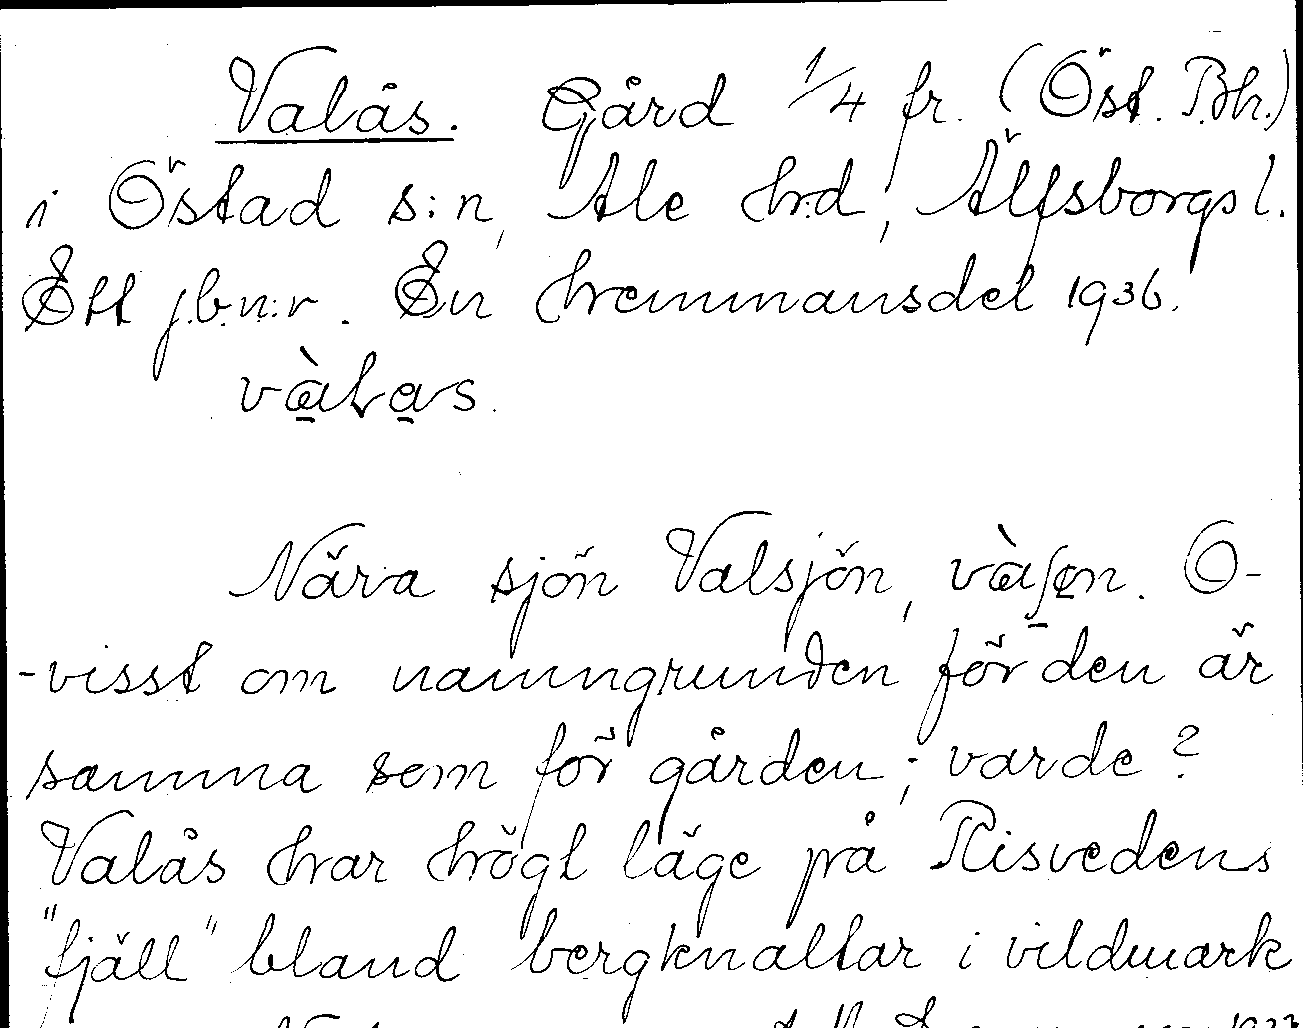 Valås. Gård 1/4 fr. (Öst. Bhr.)
i Östad s:n, Ale hrd, Älfsborgs l.
Ett j.b.n:r. En hemmansdel 1936.
Nära sjön Valsjön, O-
-visst om namngrunden för den är
samma som för gården; varde?
Valås har högt läge på Risvedens
"fjäll" bland bergknallar i vildmark